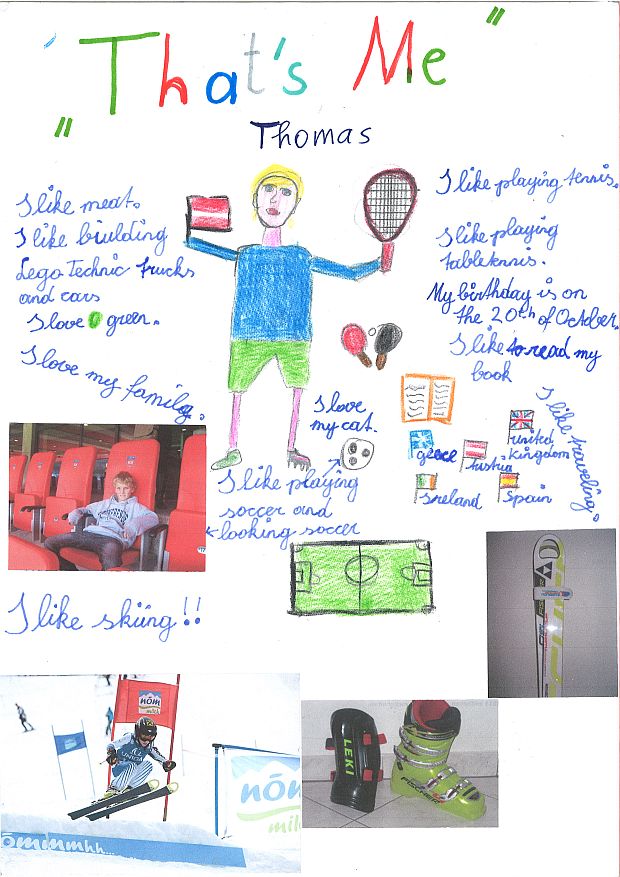 "That's Me"
Thomas
I like meat.
I like biulding
Lego Technic trucks
and cars
I love green.
I love my family.
I like playing tennis.
I like playing
tabletennis.
My birthday is on
the 20th of October.
I like to read my
book
I like traveling.
I love
my cat.
greece
Austria
united
kingdom
Ireland
Spain
I like playing
soccer and
looking soccer
I like skiing!!
nöm
milch
nöm
mil
nömmmhh...
LEKI
FISCHER